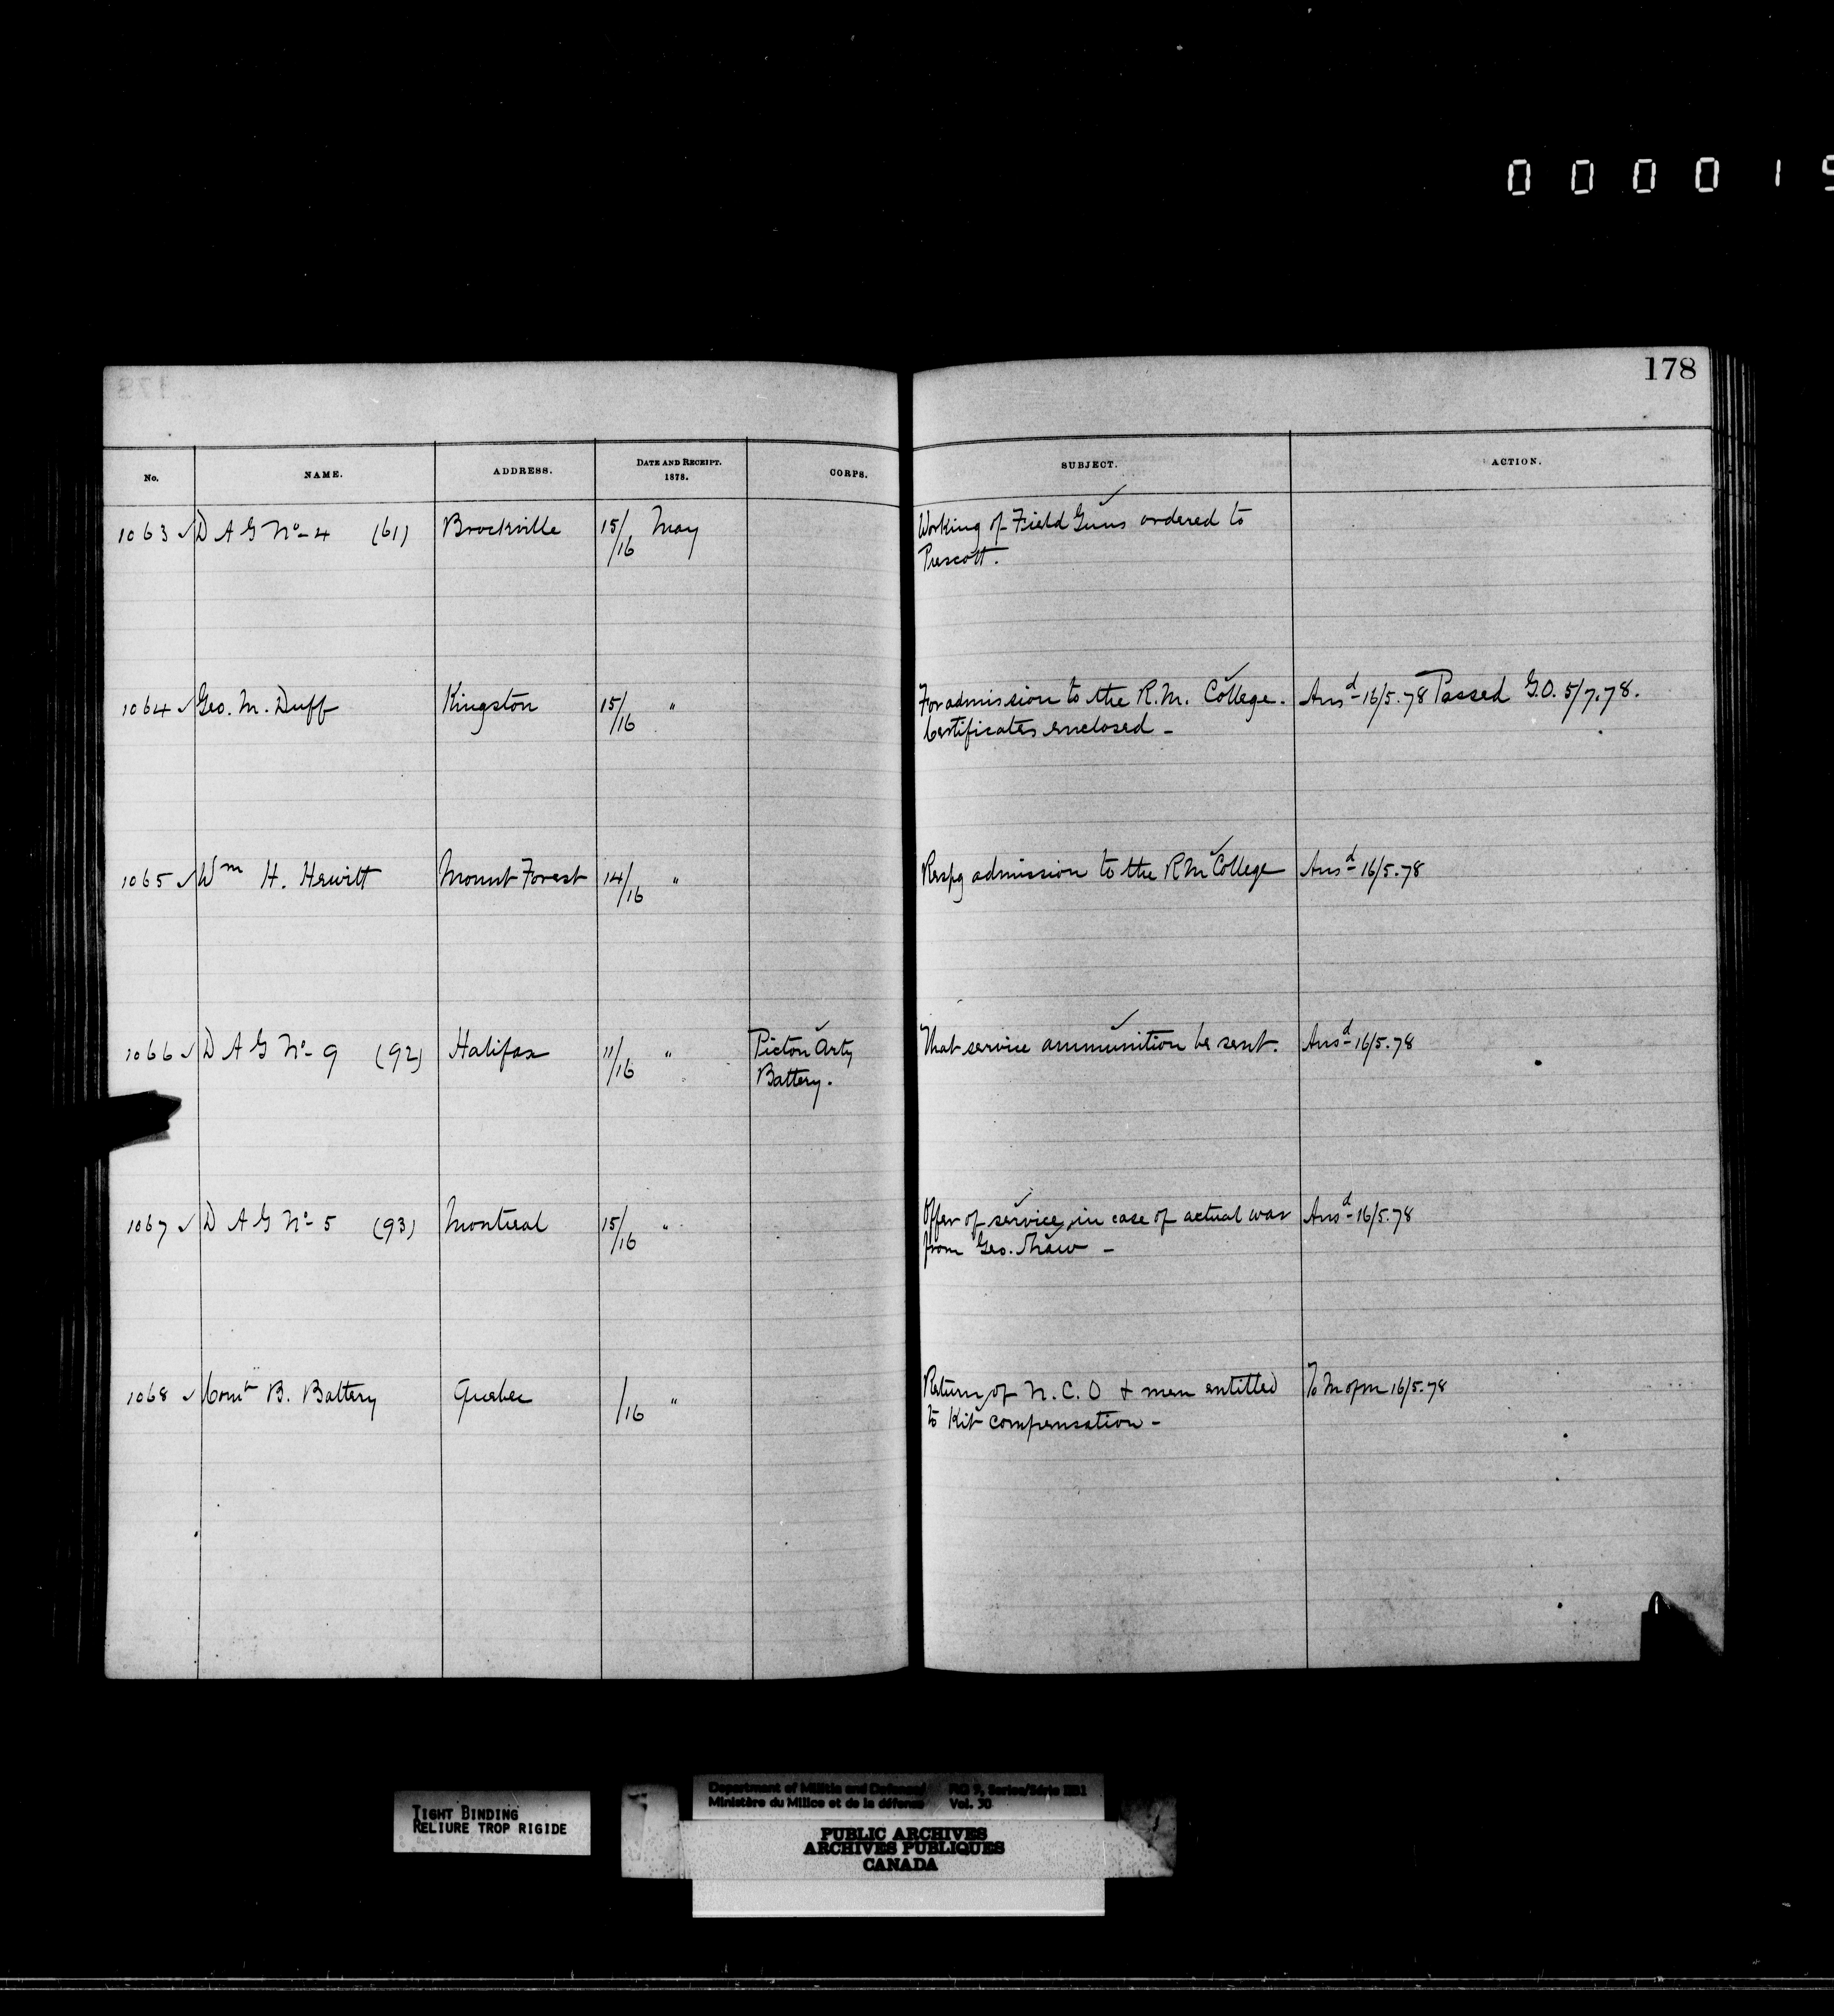 0 0 0 0 1
178
No. NAME. ADDRESS. DATE AND RECEIPT. 1878. CORPS. SUBJECT. ACTION.
1063 ✓ D A G No- 4 (61) Brockville 15/16 May Working of Field Guns ordered to
Prescott.
1064 ✓ Geo. M. Duff Kingston 15/16 " For admission to the R.M. College. Ansd- 16/5.78 Passed G.O. 5/7.78.
Certificates enclosed -
1065 ✓ Wm H. Hewitt Mount Forest 14/16 " Respg admission to the RM College Ansd- 16/5.78
1066 ✓ D A G No- 9 (92) Halifax 11/16 " Picton Arty That service ammunition be sent. Ansd- 16/5.78
Battery.
1067 ✓ D A G No- 5 (93) Montreal 15/16 " Offer of service in case of actual war Ansd- 16/5.78
from Geo. Shaw -
1068 ✓ Comt B. Battery Quebec /16 " Return of N.C.O & men entitled To M of M 16/5.78
to Kit compensation -
TIGHT BINDING
RELIURE TROP RIGIDE
Department of Militia and Defence
Ministère du Milice et de la défense Vol. 30
PUBLIC ARCHIVES
ARCHIVES PUBLIQUES
CANADA